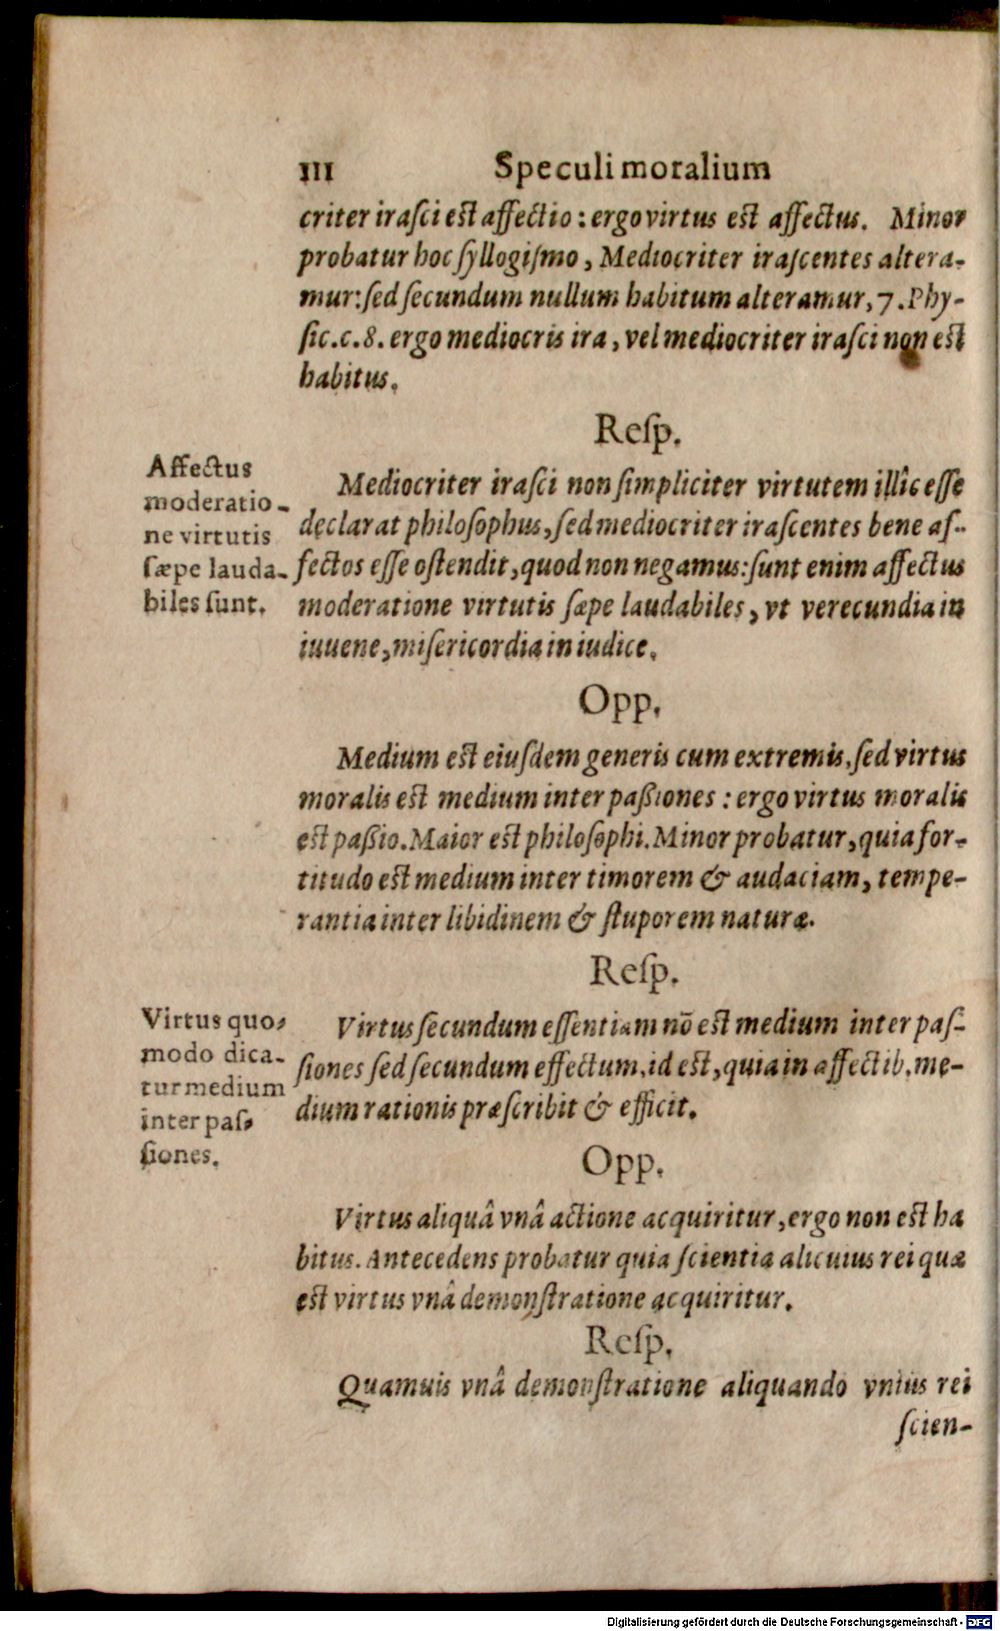 III Speculi moralium
criter iraſci est affectio : ergo virtus est affectus. Minor
probatur hoc ſyllogiſmo, Mediocriter iraſcentes altera-
mur: ſed ſecundum nullum habitum alteramur, 7. Phy-
ſic. c. 8. ergo mediocris ira, vel mediocriter iraſci non est
habitus.
Reſp.
Affectus
moderatio-
ne virtutis
ſæpe lauda-
biles ſunt.
Mediocriter iraſci non ſimpliciter virtutem illîc eſſe
declarat philoſophus, ſed mediocriter iraſcentes bene af-
fectos eſſe oſtendit, quod non negamus: ſunt enim affectus
moderatione virtutis ſæpe laudabiles, vt verecundia in
iuuene, miſericordia in iudice.
Opp.
Medium est eiuſdem generis cum extremis, ſed virtus
moralis est medium inter paßiones : ergo virtus moralis
est paßio. Maior est philoſophi. Minor probatur, quia for-
titudo est medium inter timorem & audaciam, tempe-
rantia inter libidinem & ſtuporem naturæ.
Reſp.
Virtus quo-
modo dica-
tur medium
inter paſ-
ſiones.
Virtus ſecundum eſſentiam nō est medium inter paſ-
ſiones ſed ſecundum effectum, id est, quia in affectib. me-
dium rationis præſcribit & efficit.
Opp.
Virtus aliquâ vnâ actione acquiritur, ergo non est ha
bitus. Antecedens probatur quia ſcientia alicuius rei quæ
est virtus vnâ demonſtratione acquiritur.
Reſp.
Quamuis vnâ demonſtratione aliquando vnius rei
ſcien-
Digitalisierung gefördert durch die Deutsche Forschungsgemeinschaft - DFG